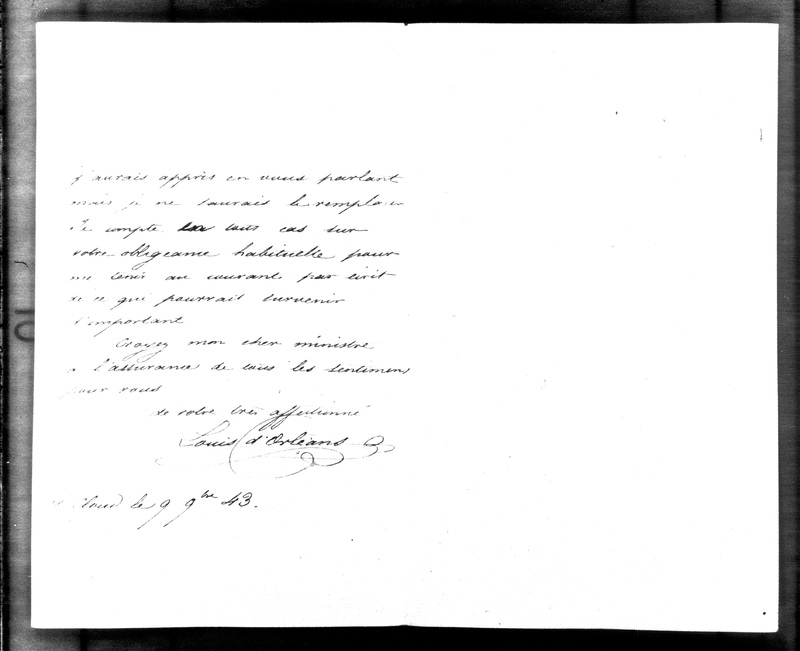 j'aurais appris en vous parlant
mais je ne saurais le remplacer
Je compte en tous cas sur
votre obligeance habituelle pour
me tenir au courant par écrit
de ce qui pourrait survenir
d'important
Croyez mon cher ministre
a l'assurance de tous les sentimens
pour vous
de votre très affectionné
Louis d'Orléans
Cloud le 9 9bre 43.